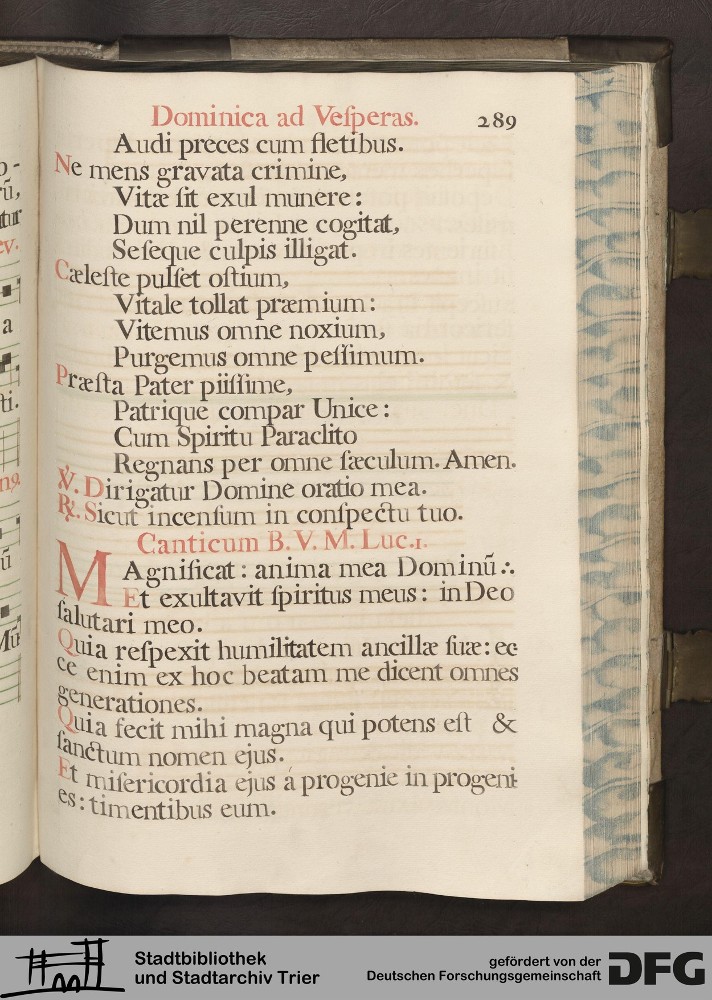 Dominica ad Veſperas. 289
Audi preces cum fletibus.
Ne mens gravata crimine,
Vitæ ſit exul munere:
Dum nil perenne cogitat,
Seſeque culpis illigat.
Cæleſte pulſet oſtium,
Vitale tollat præmium:
Vitemus omne noxium,
Purgemus omne peſſimum.
Præſta Pater piiſſime,
Patrique compar Unice:
Cum Spiritu Paraclito
Regnans per omne ſæculum. Amen.
℣. Dirigatur Domine oratio mea.
℟. Sicut incenſum in conſpectu tuo.
Canticum B. V. M. Luc. 1.
MAgnificat: anima mea Dominū ∴
Et exultavit ſpiritus meus: in Deo
ſalutari meo.
Quia reſpexit humilitatem ancillæ ſuæ: ec
ce enim ex hoc beatam me dicent omnes
generationes.
Quia fecit mihi magna qui potens eſt &
ſanctum nomen ejus.
Et miſericordia ejus á progenie in progeni
es: timentibus eum.
Stadtbibliothek
und Stadtarchiv Trier
gefördert von der
Deutschen Forschungsgemeinschaft
DFG